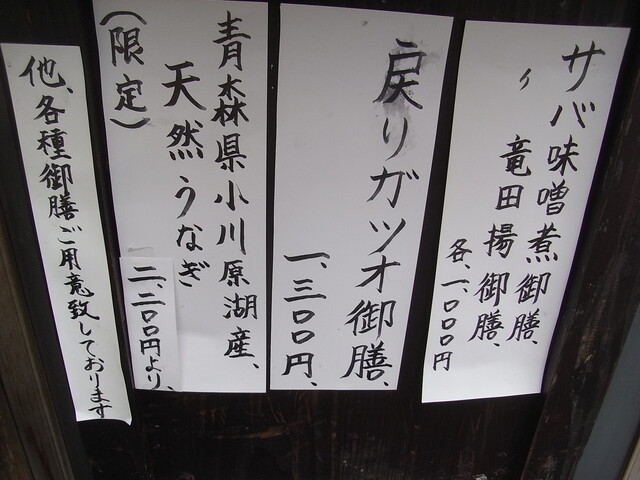 サバ味噌煮御膳、
〃 竜田揚御膳、
各、一、〇〇〇円
戻りガツオ御膳、
一、三〇〇円、
青森県小川原湖産、
天然うなぎ
(限定)
二、二〇〇円より、
他、各種御膳ご用意致しております